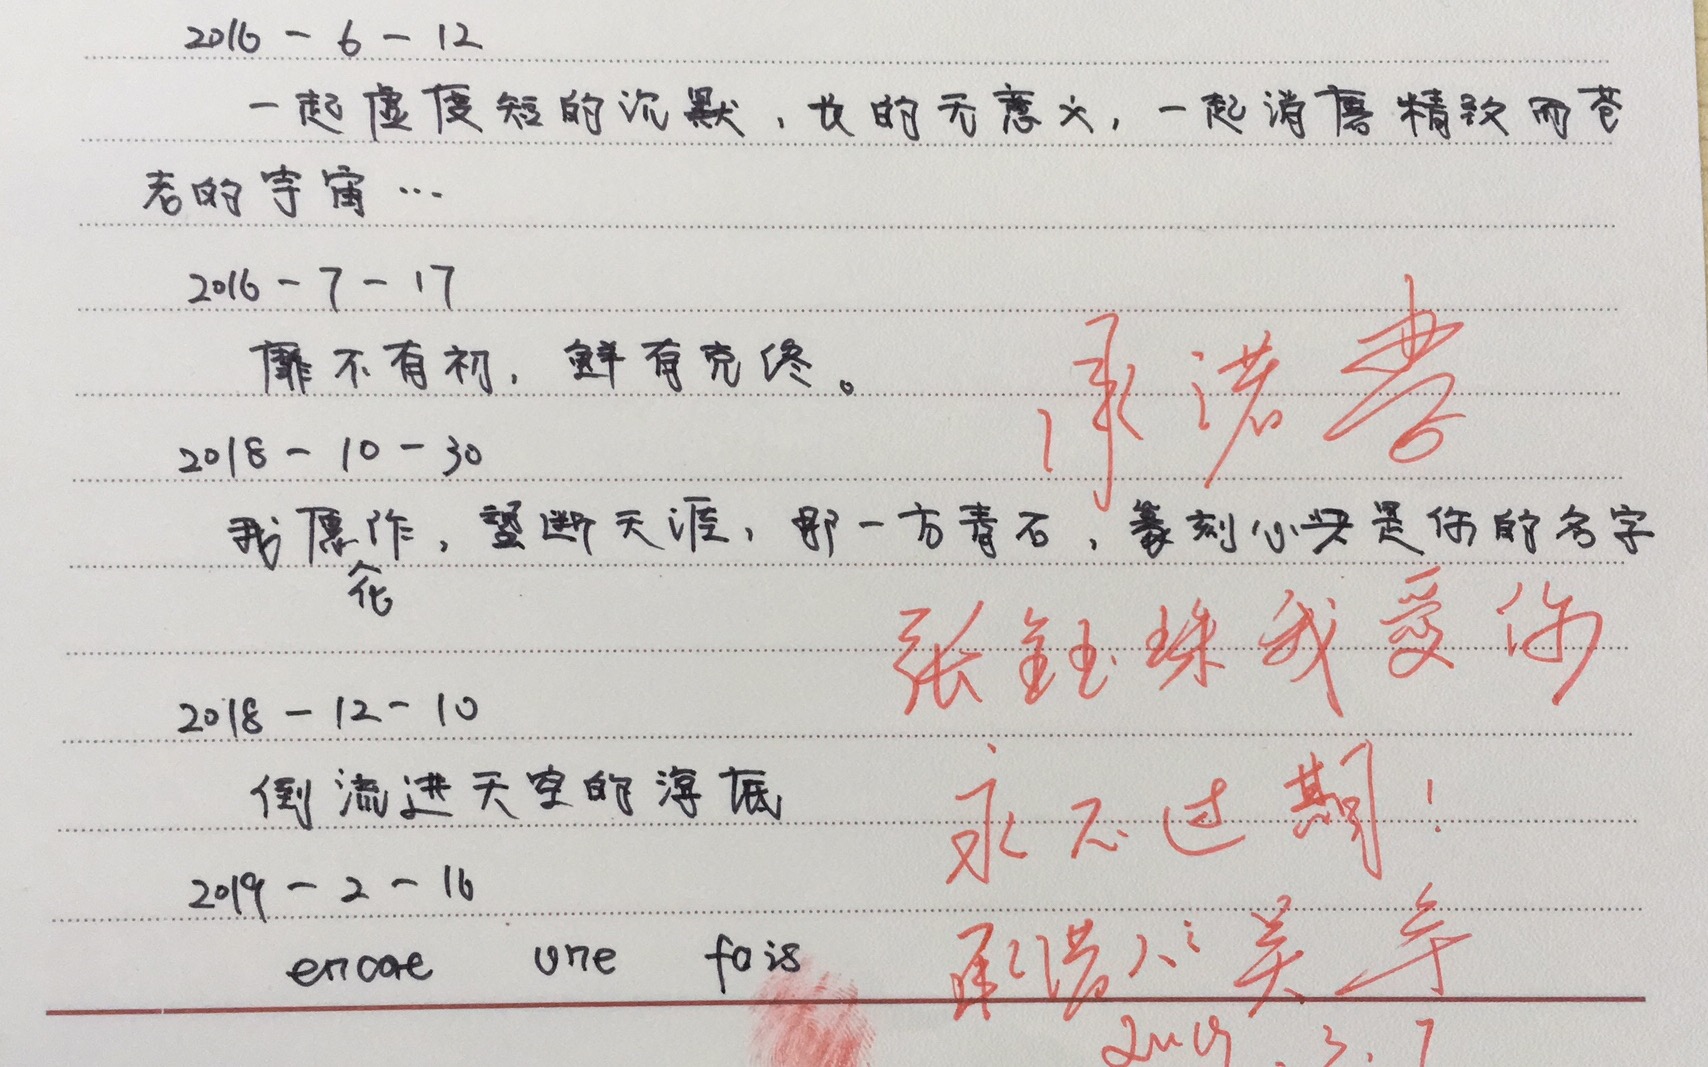 2016-6-12
一起虚度短的沉默，长的无意义，一起消磨精致而苍
老的宇宙…
2016-7-17
靡不有初，鲜有克终。
2018-10-30
我愿作，望断天涯，那一方青石，篆刻心头是你的名字
化
2018-12-10
倒流进天空的深底
2019-2-16
encore une fois
承诺书
张钰珠我爱你
永不过期！
承诺人：美年
2019.3.7